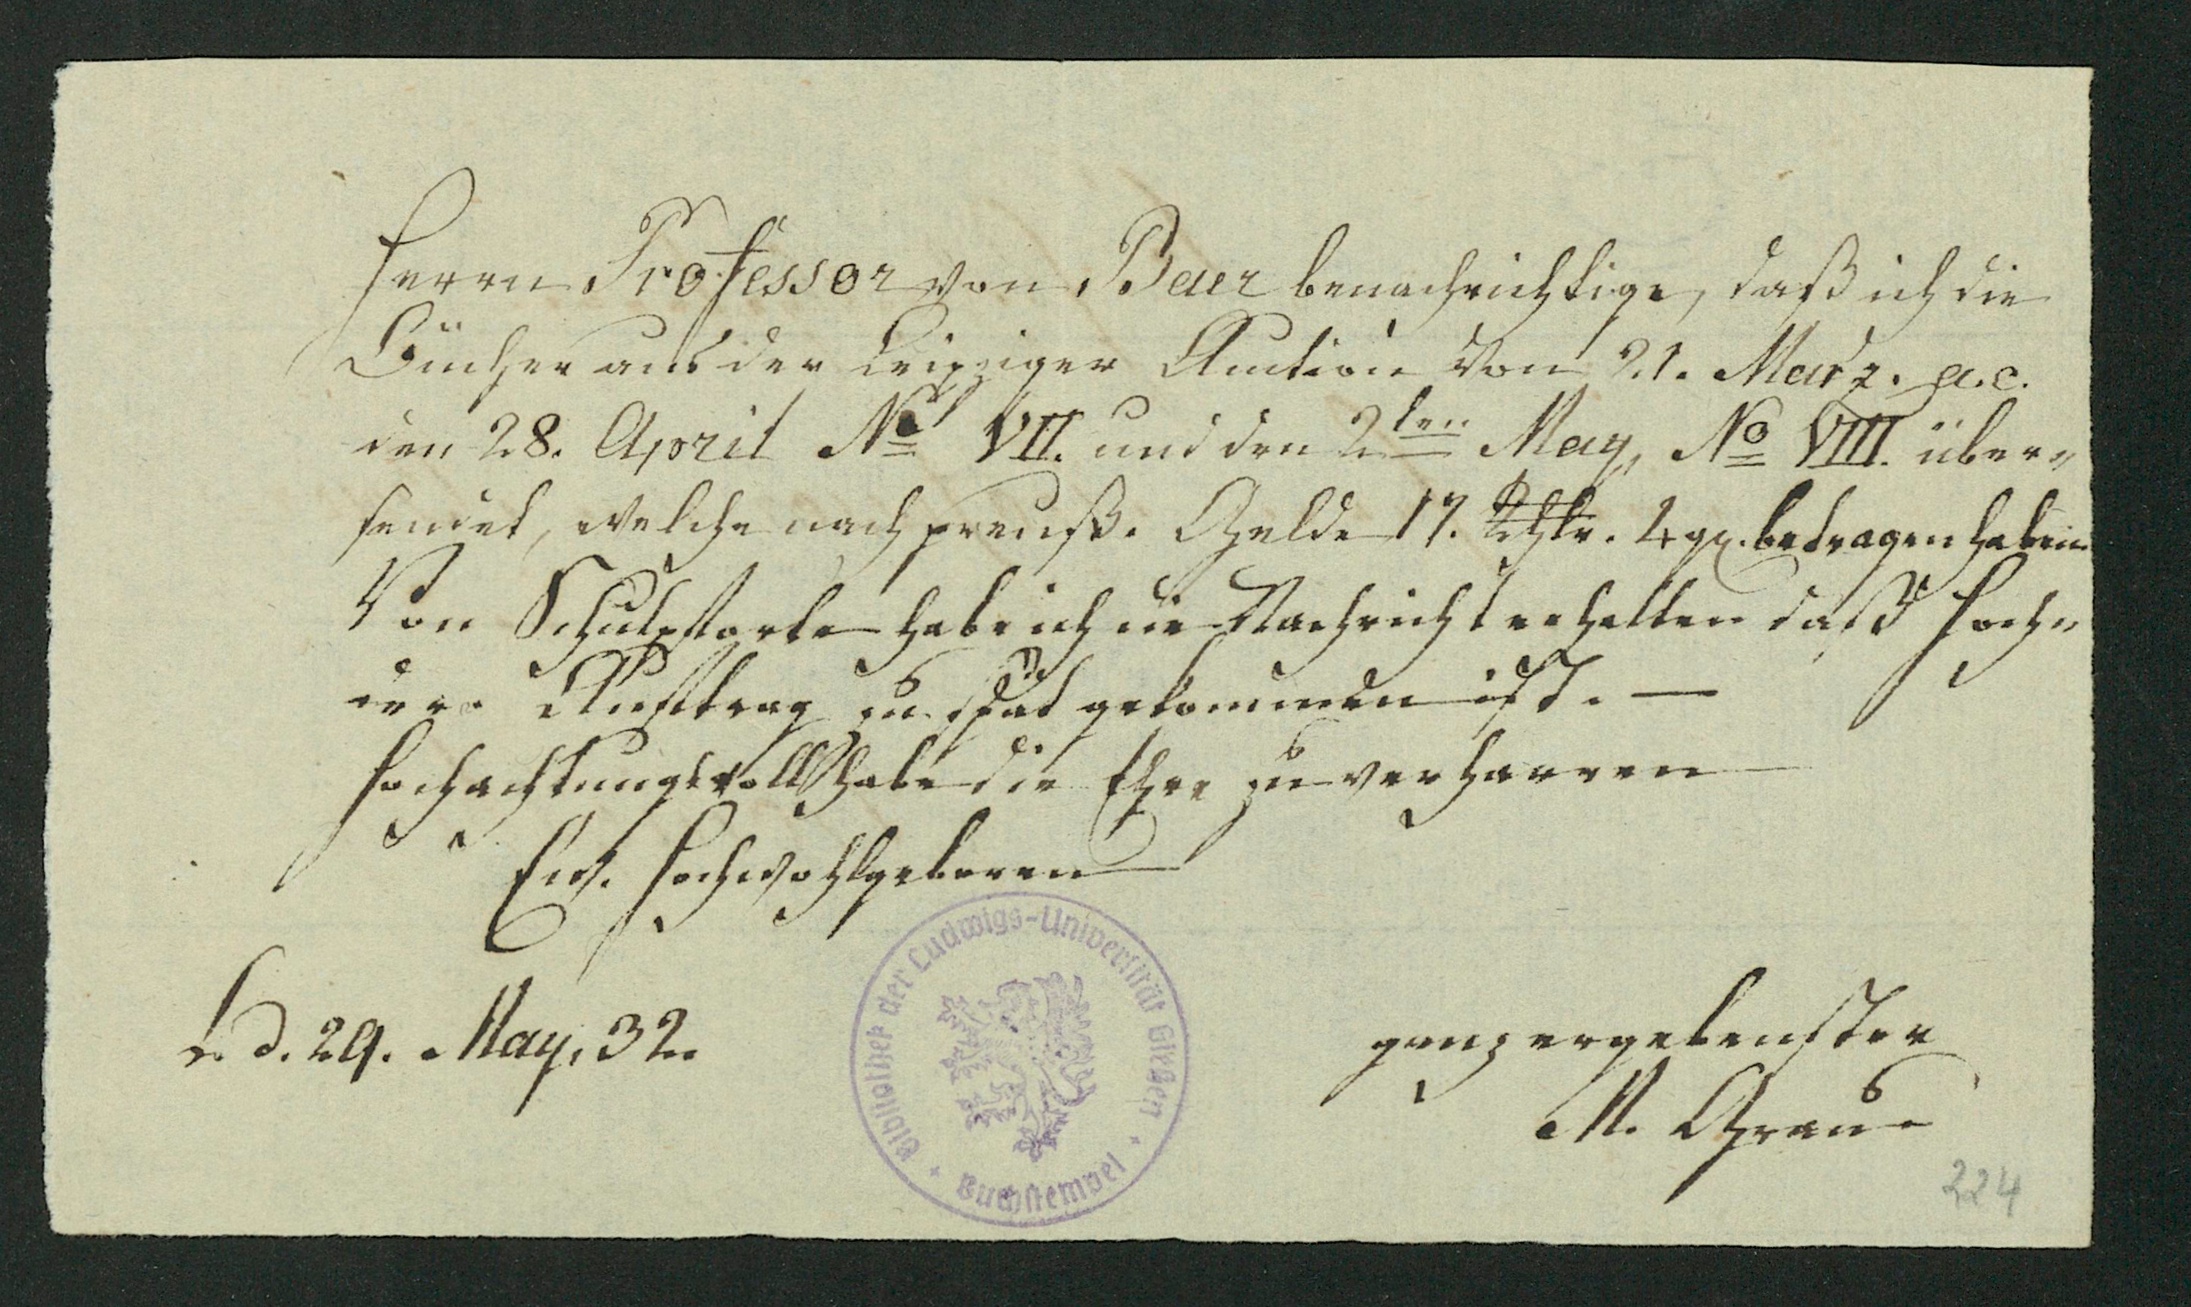 Herrn Professor von Baer benachrichtige, daß ich die
Bücher aus der Leipziger Auction vom 21. März. a.c.
den 28. April No VII. und den 2ten May, No VIII. über-
sendet, welche nach preuß. Gelde 17. Rthlr. 4 gr. betragen haben.
Von Schulpforte habe ich die Nachricht erhalten daß Hoch-
dero Auftrag zu spät gekommen ist. —
Hochachtungsvoll habe die Ehre zu verharren
Ew. Hochwohlgeboren
d. 29. May, 32.
ganz ergebenster
M. Grau
Bibliothek der Ludwigs-Universität Gießen
Buchstempel
224